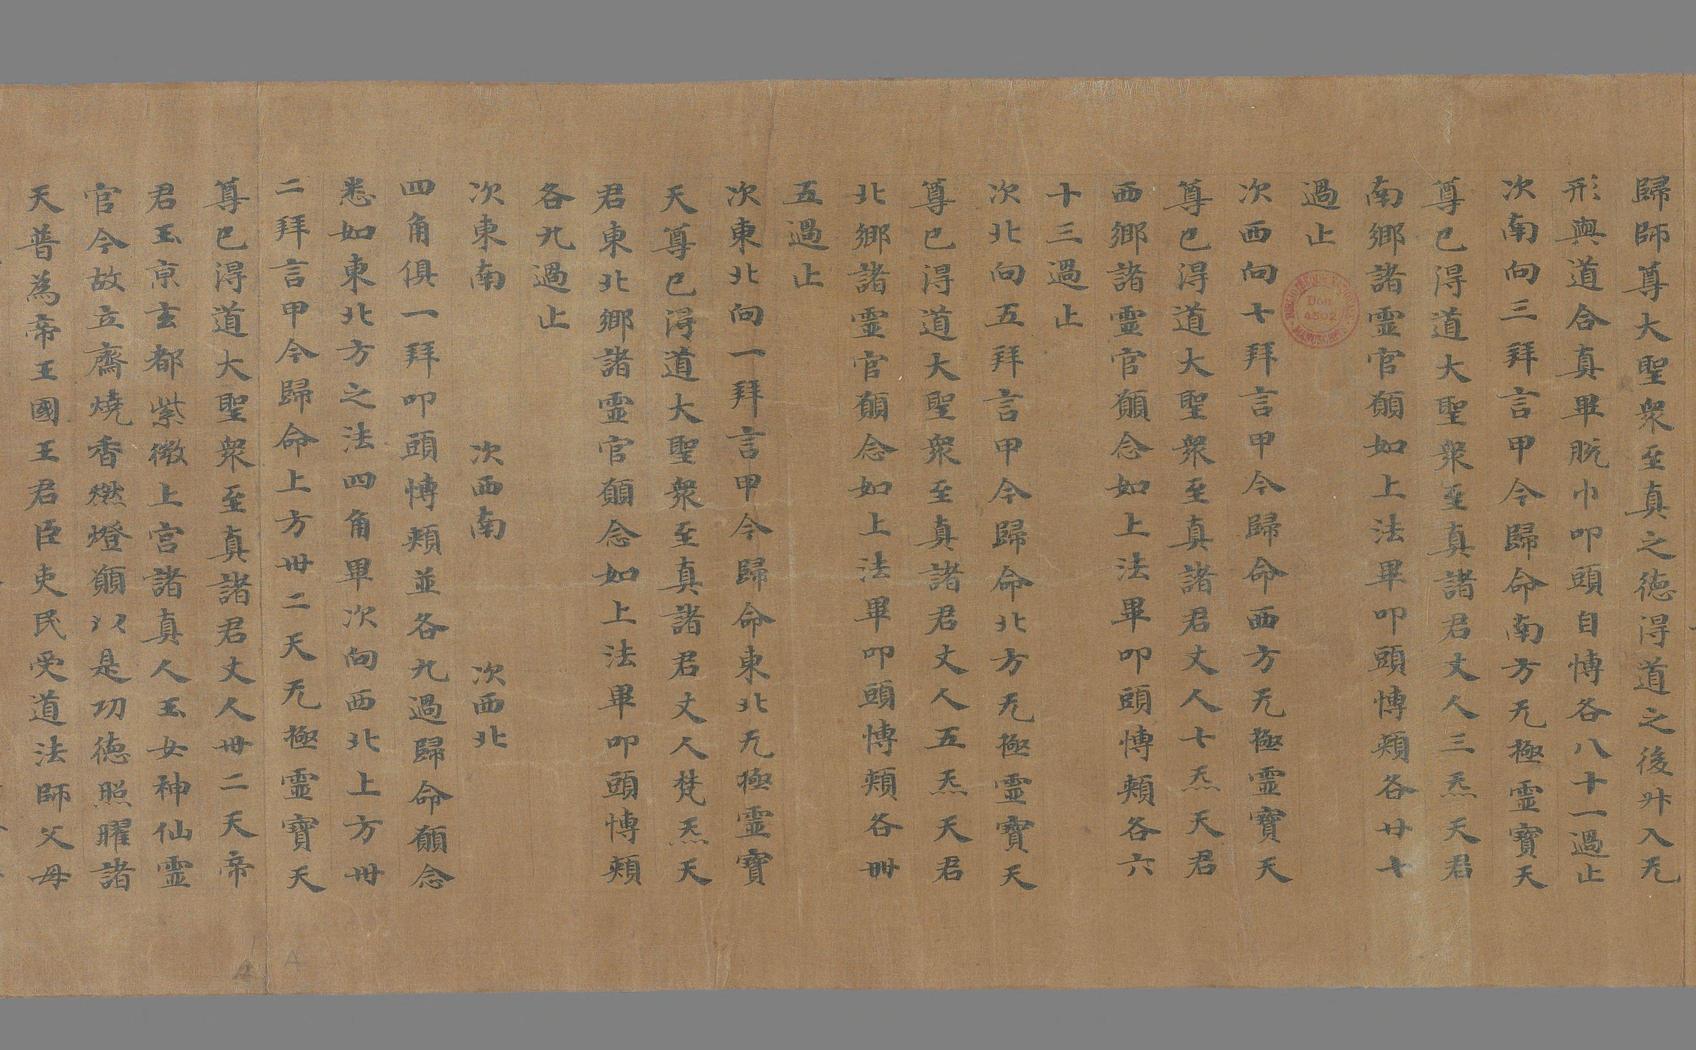 歸師尊大聖衆至真之德得道之後升入无
形與道合真畢脱巾叩頭自愽各八十一過止
次南向三拜言甲今歸命南方无極靈寶天
尊已得道大聖衆至真諸君丈人三炁天君
南鄉諸靈官願如上法畢叩頭愽頰各廿七
過止
次西向七拜言甲今歸命西方无極靈寶天
尊已得道大聖衆至真諸君丈人七炁天君
西鄉諸靈官願念如上法畢叩頭愽頰各六
十三過止
次北向五拜言甲今歸命北方无極靈寶天
尊已得道大聖衆至真諸君丈人五炁天君
北鄉諸靈官願念如上法畢叩頭愽頰各卌
五過止
次東北向一拜言甲今歸命東北无極靈寶
天尊已得道大聖衆至真諸君丈人梵炁天
君東北鄉諸靈官願念如上法畢叩頭愽頰
各九過止
次東南 次西南 次西北
四角俱一拜叩頭愽頰並各九過歸命願念
悉如東北方之法四角畢次向西北上方卅
二拜言甲今歸命上方卅二天无極靈寶天
尊已得道大聖衆至真諸君丈人卅二天帝
君玉京玄都紫微上宫諸真人玉女神仙靈
官今故立齋燒香燃燈願以是功德照曜諸
天普為帝王國王君臣吏民受道法師父母
Don
4502